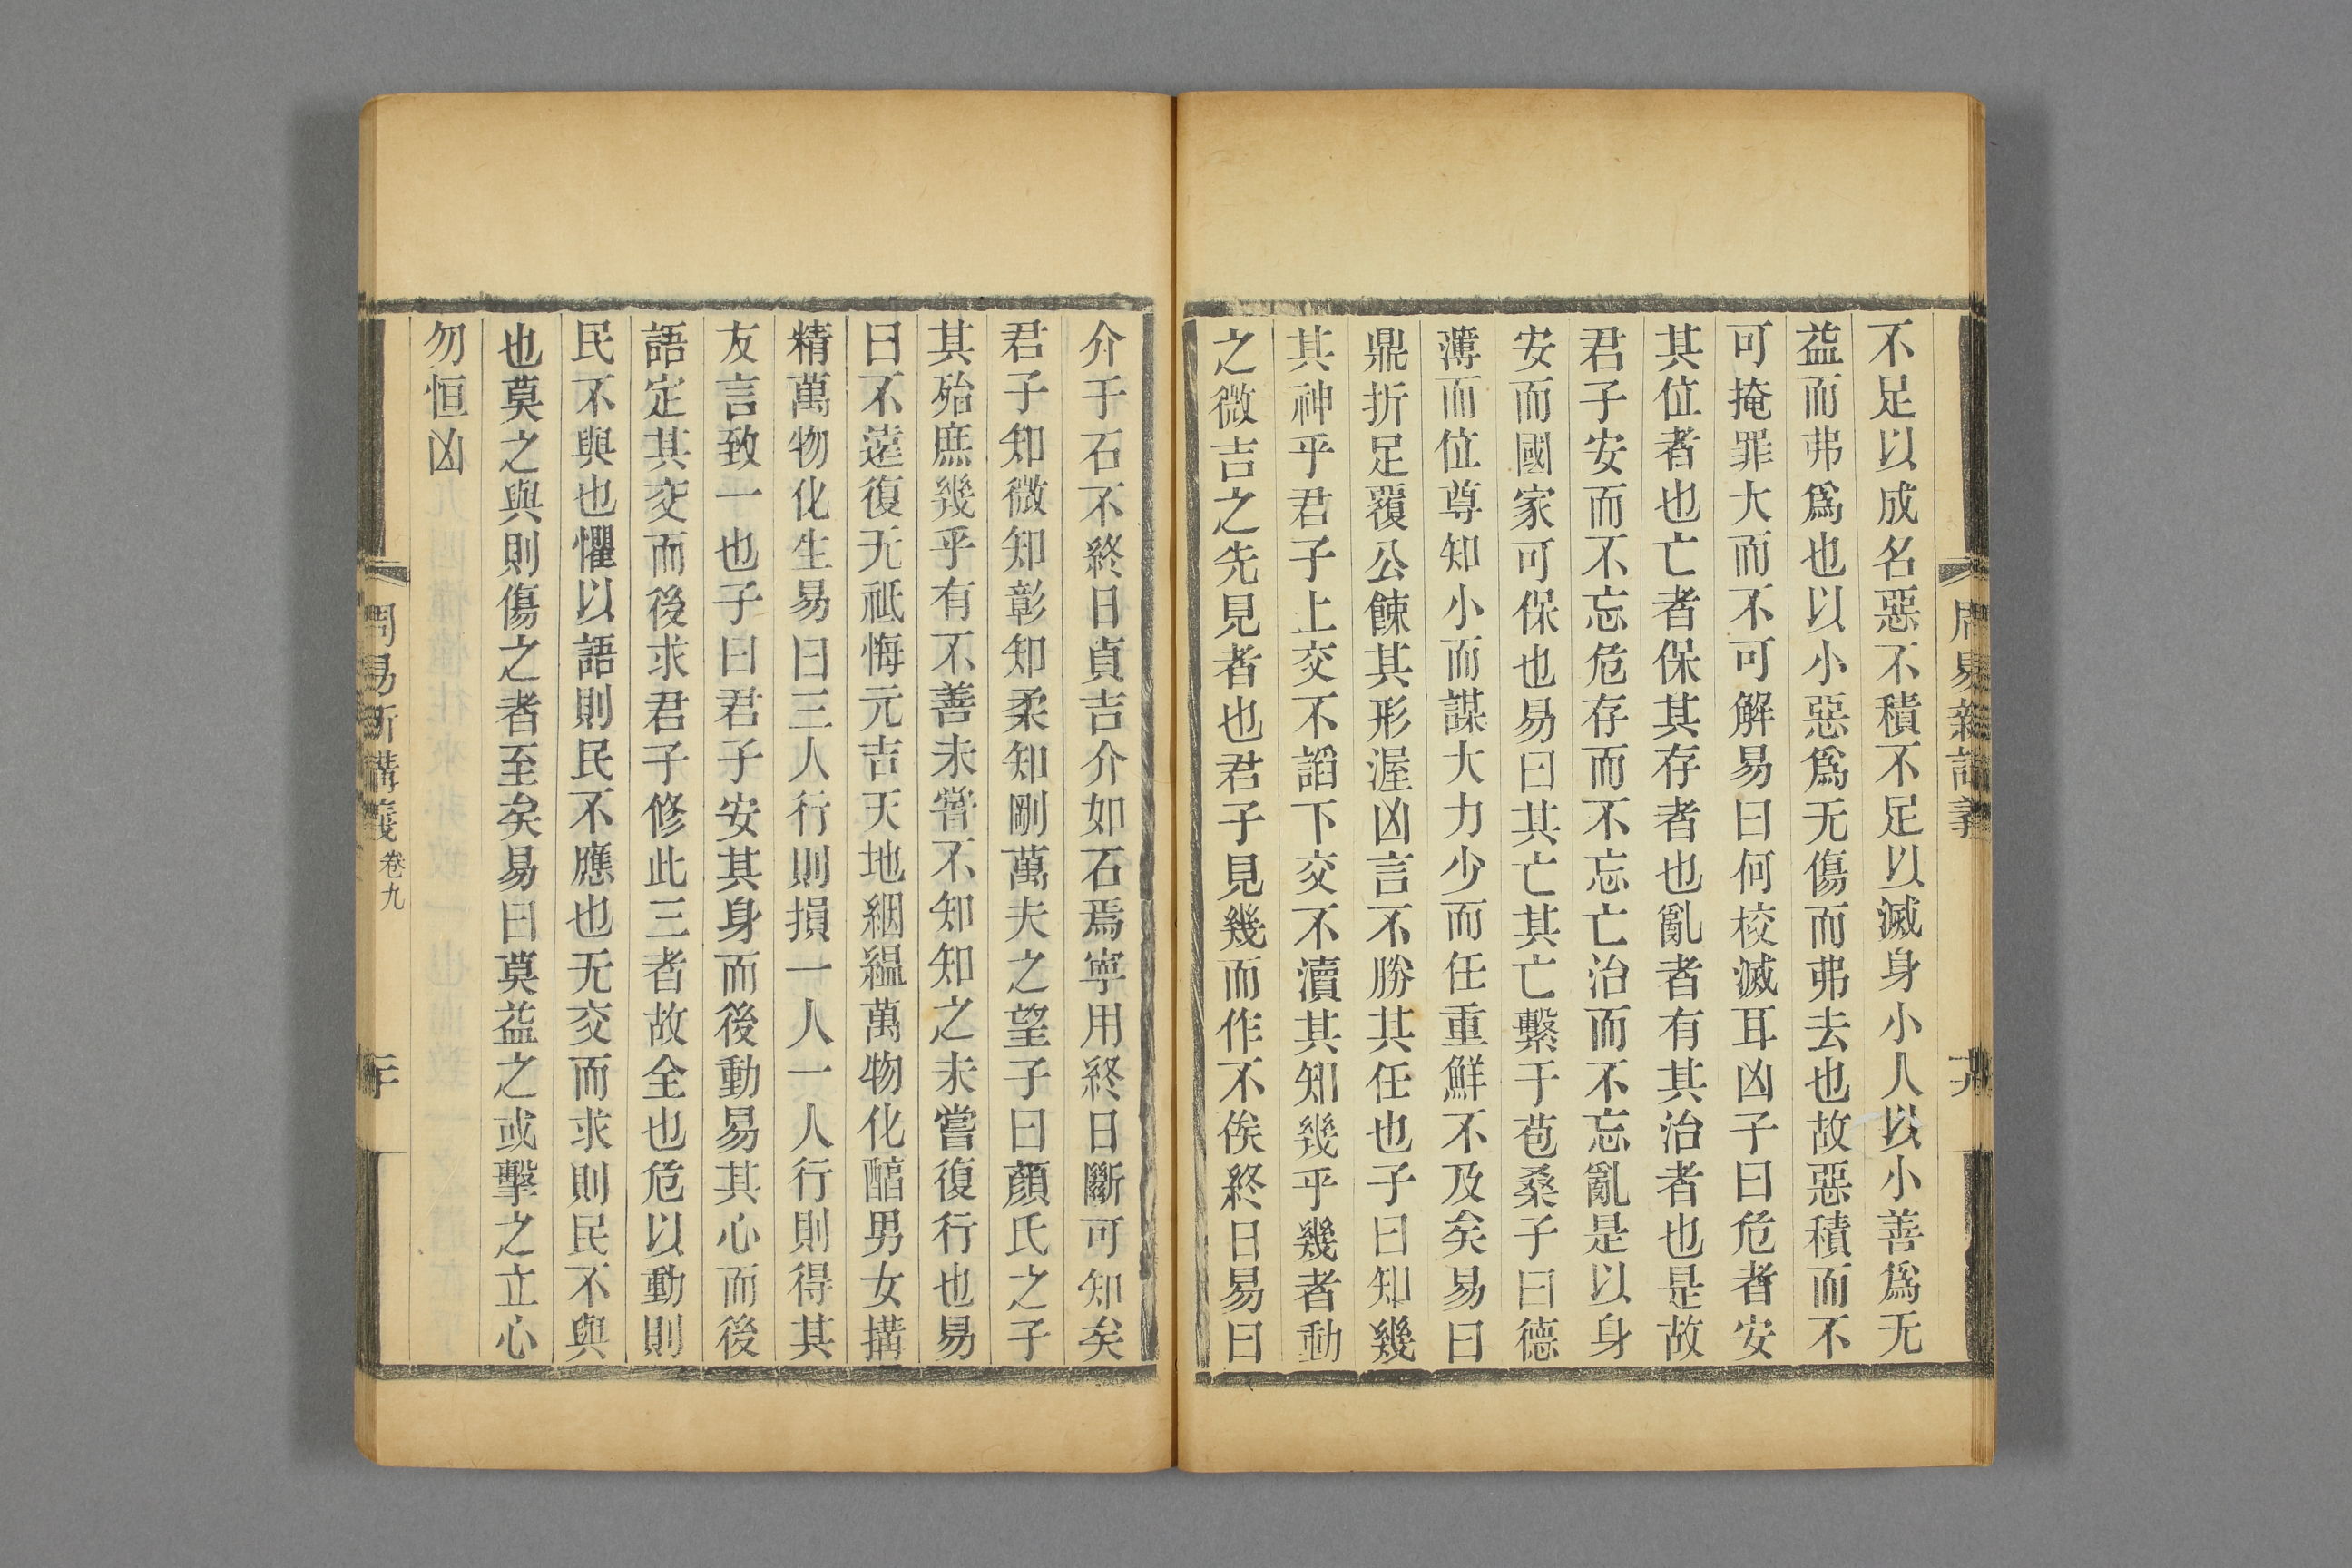 不足以成名惡不積不足以滅身小人以小善爲无
益而弗爲也以小惡爲无傷而弗去也故惡積而不
可掩罪大而不可解易曰何校滅耳凶子曰危者安
其位者也亡者保其存者也亂者有其治者也是故
君子安而不忘危存而不忘亡治而不忘亂是以身
安而國家可保也易曰其亡其亡繫于苞桑子曰德
薄而位尊知小而謀大力少而任重鮮不及矣易曰
鼎折足覆公餗其形渥凶言不勝其任也子曰知幾
其神乎君子上交不諂下交不瀆其知幾乎幾者動
之微吉之先見者也君子見幾而作不俟終日易曰
介于石不終日貞吉介如石焉寧用終日斷可知矣
君子知微知彰知柔知剛萬夫之望子曰顏氏之子
其殆庶幾乎有不善未嘗不知知之未嘗復行也易
曰不遠復无祗悔元吉天地絪縕萬物化醇男女搆
精萬物化生易曰三人行則損一人一人行則得其
友言致一也子曰君子安其身而後動易其心而後
語定其交而後求君子修此三者故全也危以動則
民不與也懼以語則民不應也无交而求則民不與
也莫之與則傷之者至矣易曰莫益之或擊之立心
勿恒凶
周易斯講義 卷九